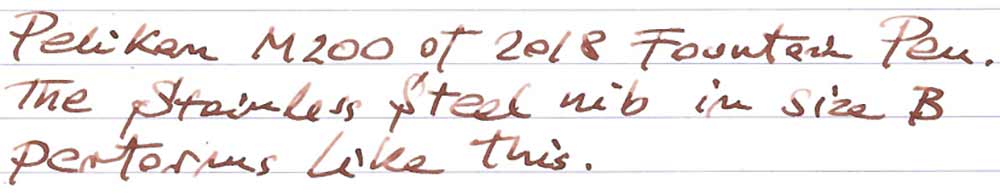 Pelikan M200 of 2018 Fountain Pen.
The Stainless Steel nib in size B
performs like this.